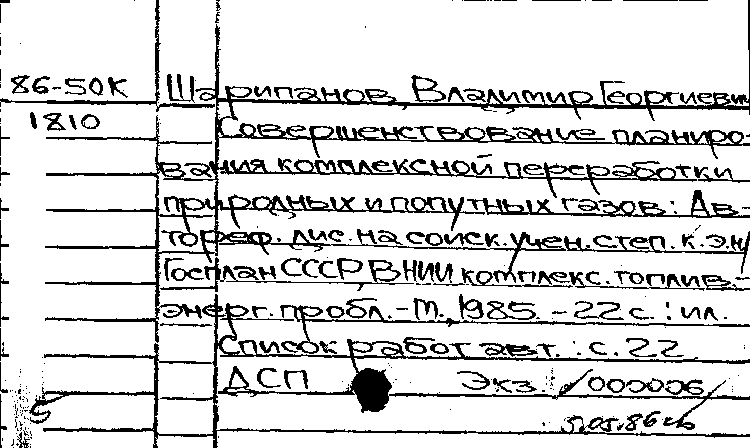 86-50К Шарипанов, Владимир Георгиевич
1810 Совершенствование планиро-
вания комплексной переработки
природных и попутных газов: Ав-
тореф. дис. на соиск. учен. степ. к.э.н/
Госплан СССР, ВНИИ комплекс. топлив.-
энерг. пробл. - М., 1985. - 22 с. : ил.
Список работ авт.: с. 22
ДСП Экз. /000006/
5.05.86